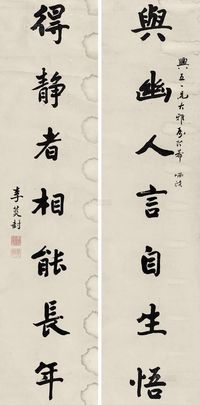 與幽人言自生悟
興五一兄大雅屬
得靜者相能長年
李芝封